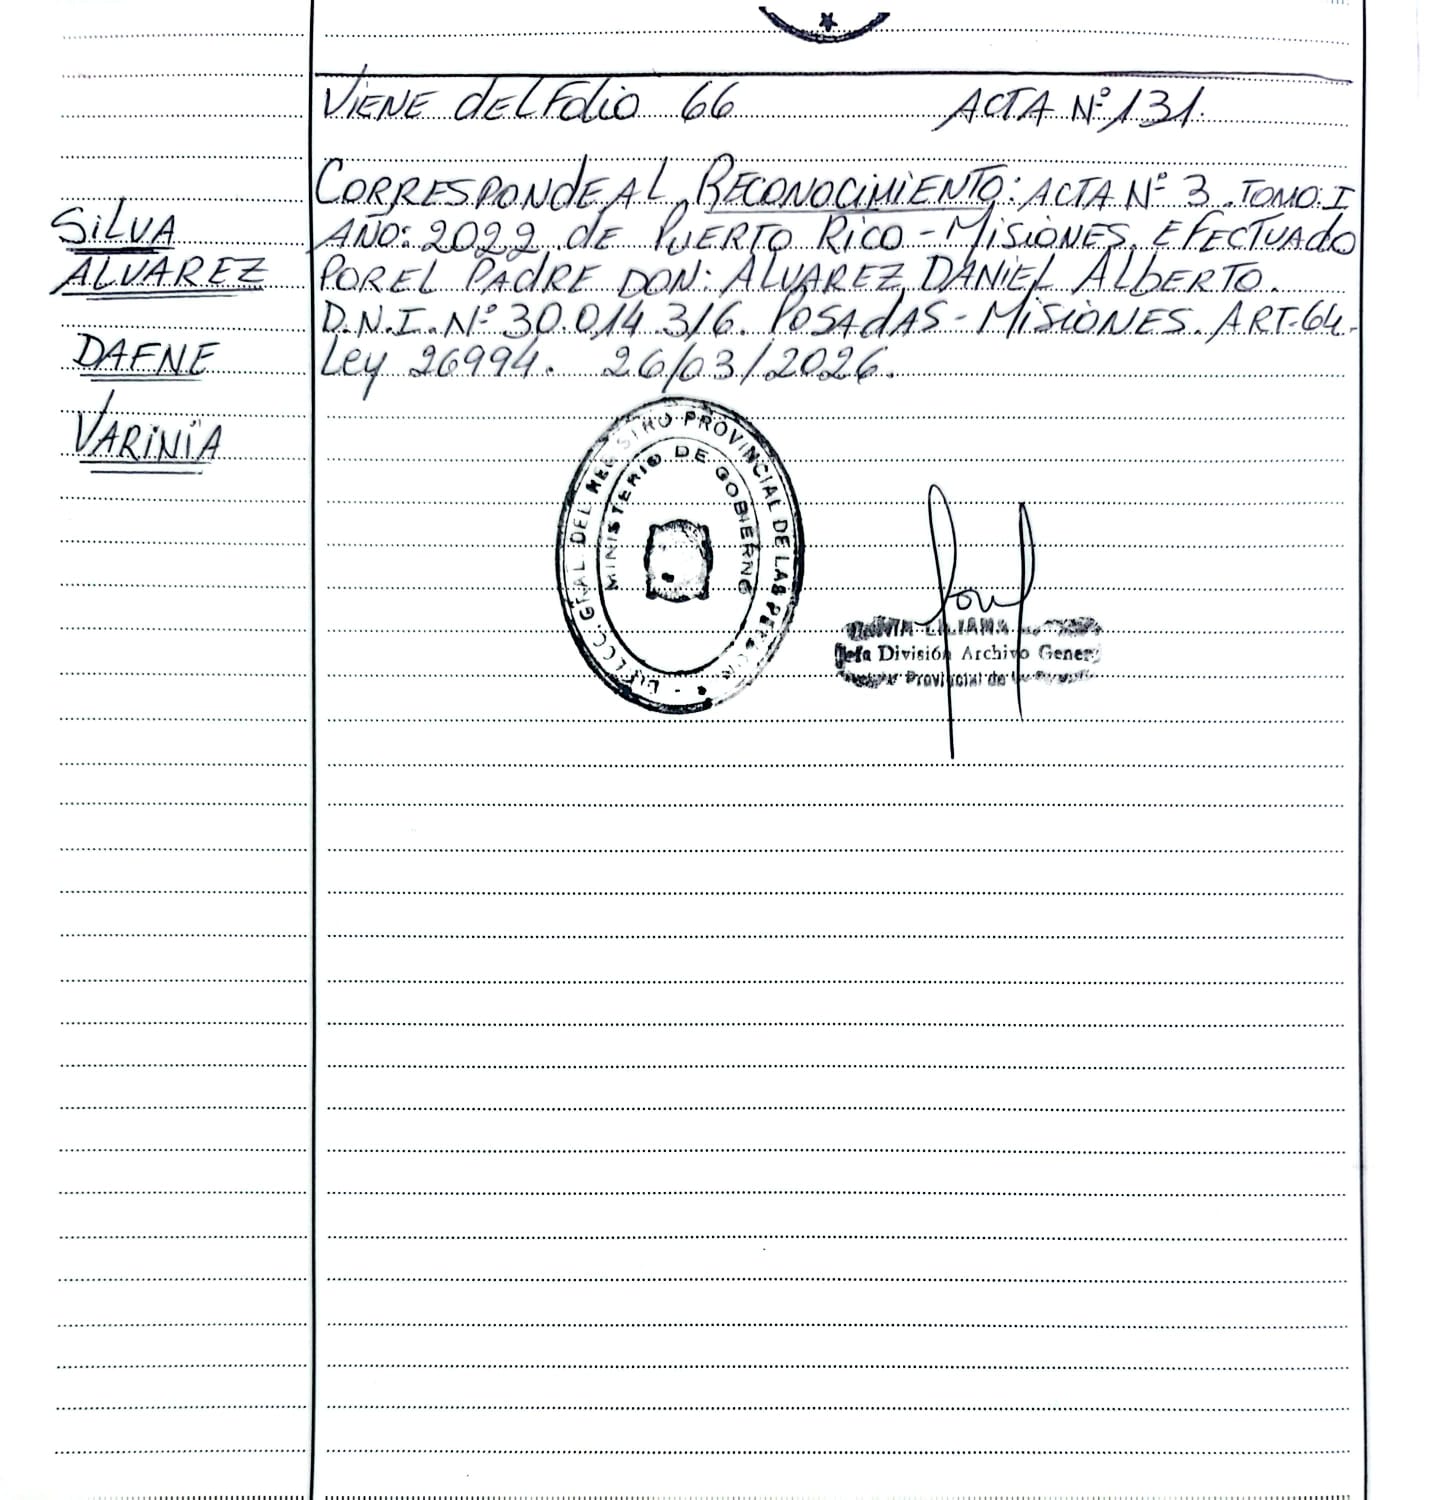 VIENE DEL FOLIO 66 ACTA Nº 131.
SILVA
ALVAREZ
DAFNE
VARINIA
CORRESPONDE AL RECONOCIMIENTO: ACTA Nº 3. TOMO: I
AÑO: 2022 de PUERTO RICO - MISIONES. EFECTUADO
POR EL PADRE DON: ALVAREZ, DANIEL ALBERTO.
D.N.I. Nº 30.014.316. POSADAS - MISIONES. ART-64-
Ley 26994. 26/03/2026.
GRAL DEL REGISTRO PROVINCIAL DE LAS
MINISTERIO DE GOBIERNO
LILIANA
Jefa División Archivo
Provincial de